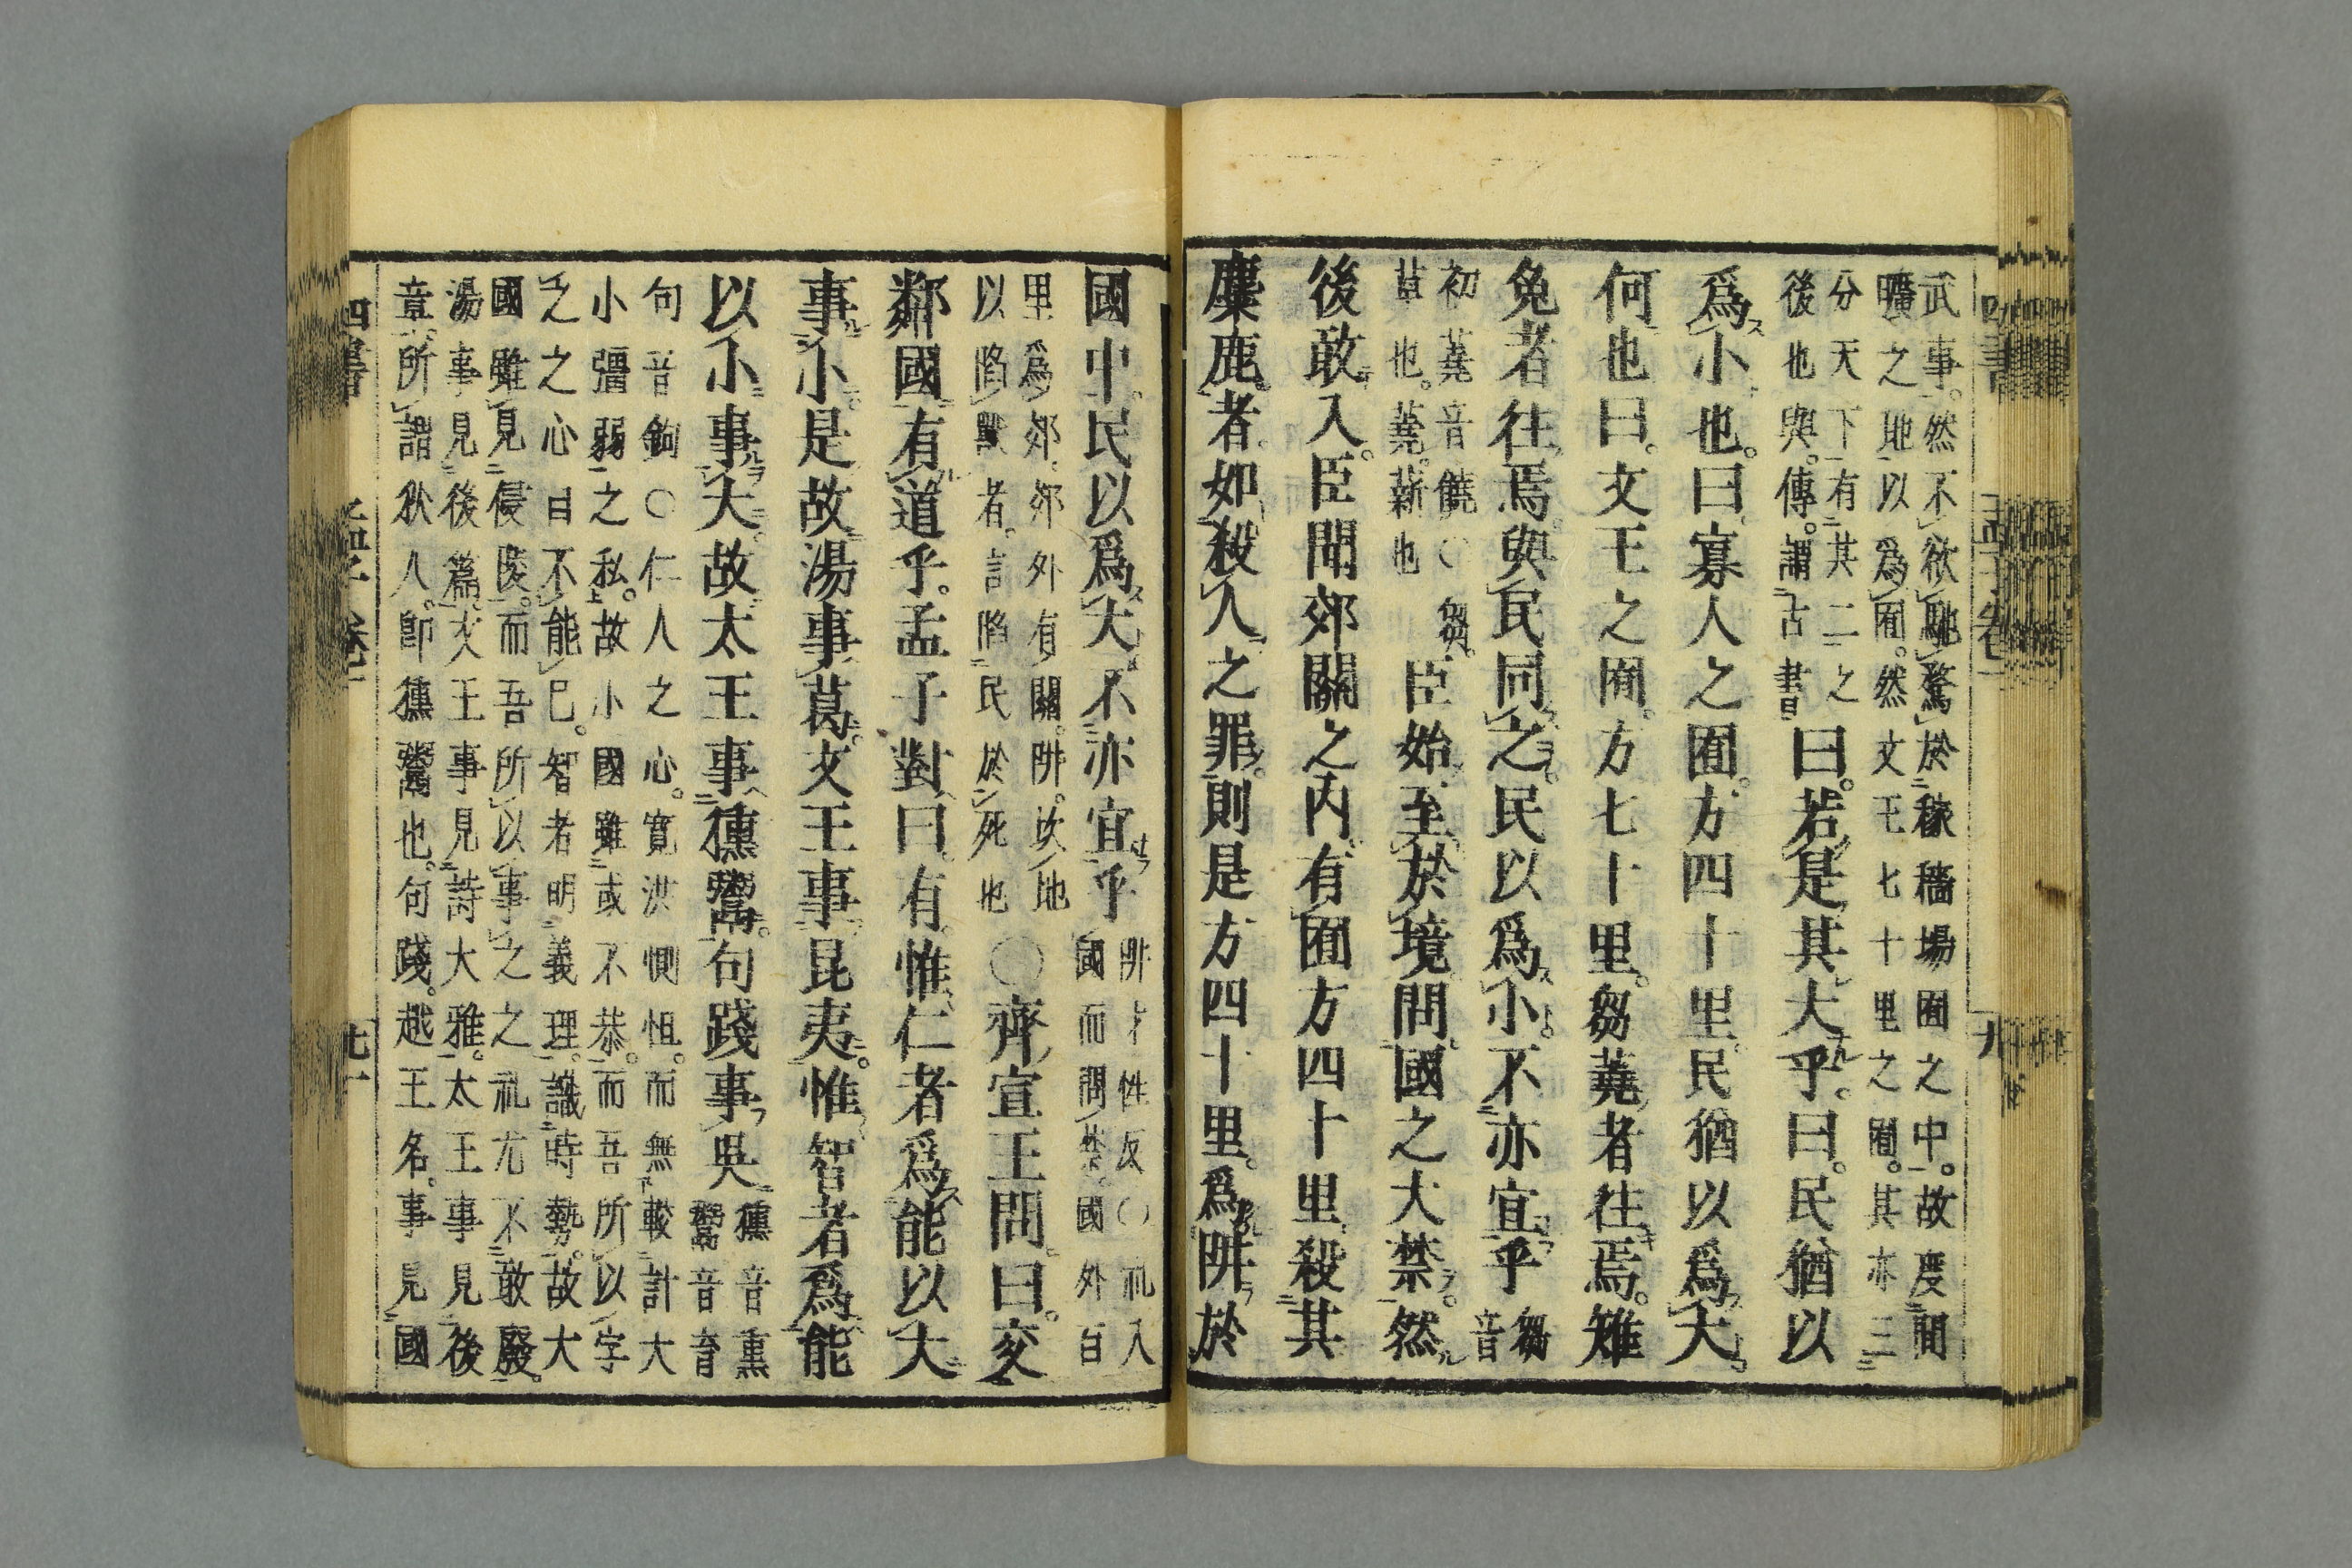 武事。然不欲馳騖於稼穡場囿之中。故度閒
曠之地以爲囿。然文王七十里之囿。其亦三
分天下有其二之
後也與。傳。謂古書
曰。若是其大乎。曰。民猶以
爲小也。曰。寡人之囿。方四十里。民猶以爲大。
何也曰。文王之囿。方七十里。芻蕘者往焉。雉
兔者往焉。與民同之。民以爲小。不亦宜乎
芻音
初蕘音饒〇芻。
草也。蕘。薪也
臣始至於境。問國之大禁。然
後敢入。臣聞郊關之內。有囿方四十里。殺其
麋鹿。者。如殺人之罪。則是方四十里。爲阱於
四書
孟子卷一
九
國中。民以爲大。不亦宜乎
阱才性反〇礼入
國而問禁。國外百
里爲郊。郊外有關。阱。坎地
以陷獸者。言陷民於死也
〇齊宣王問。曰。交
鄰國有道乎。孟子對曰。有。惟仁者爲能以大
事小。是故湯事葛。文王事昆夷。惟智者爲能
以小事大。故太王事獯鬻。句踐事吳
獯音熏
鬻音育
句音鉤〇仁人之心。寬洪惻怛。而無較計大
小彊弱之私。故小國雖或不恭。而吾所以字
之之心自不能已。智者明義理。識時勢。故大
國雖見侵陵。而吾所以事之之礼尤不敢廢。
湯事見後篇。文王事見詩大雅。太王事見後
章。所謂狄人。卽獯鬻也。句踐。越王名。事見國
四書
孟子卷一